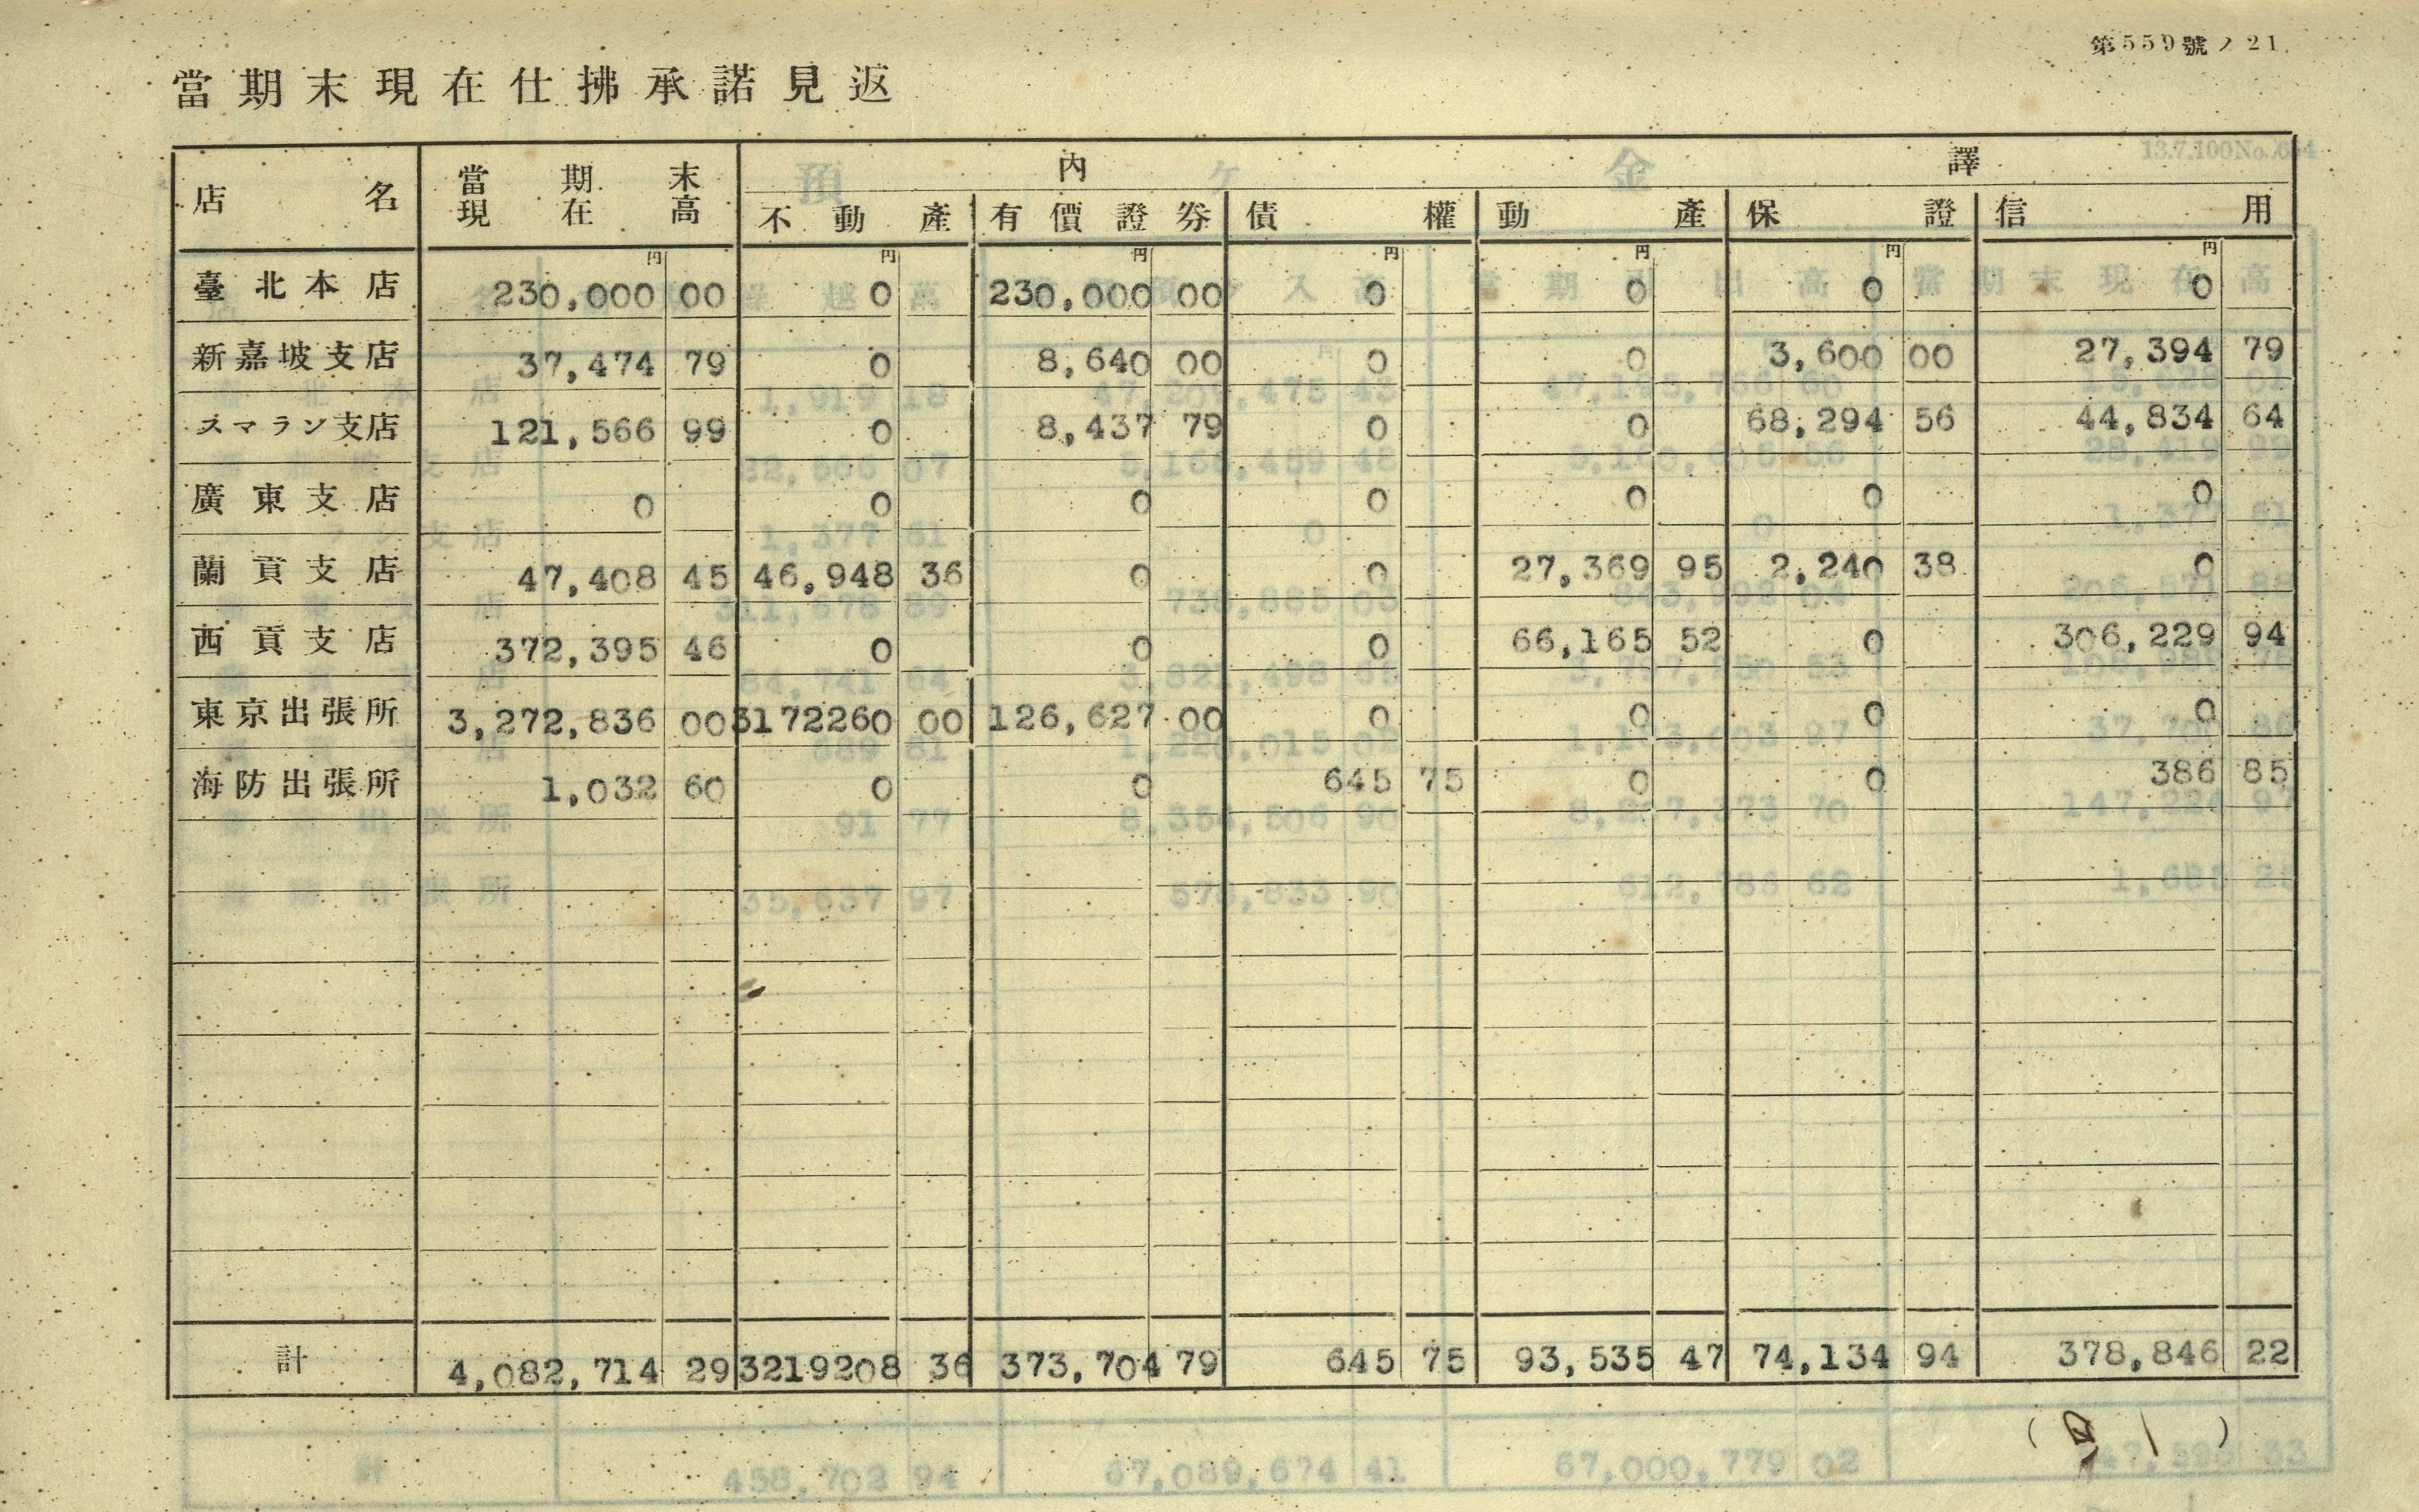 第559號ノ21
當期末現在仕拂承諾見返
店名 當期末現在高 內譯
不動產 有價證券 債權 動產 保證 信用
円 円 円 円 円 円 円
臺北本店 230,000 00 0 230,000 00 0 0 0 0
新嘉坡支店 37,474 79 0 8,640 00 0 0 3,600 00 27,394 79
スマラン支店 121,566 99 0 8,437 79 0 0 68,294 56 44,834 64
廣東支店 0 0 0 0 0 0 0
蘭貢支店 47,408 45 46,948 36 0 0 27,369 95 2,240 38 0
西貢支店 372,395 46 0 0 0 66,165 52 0 306,229 94
東京出張所 3,272,836 00 3172260 00 126,627 00 0 0 0 0
海防出張所 1,032 60 0 0 645 75 0 0 386 85
計 4,082,714 29 3219208 36 373,704 79 645 75 93,535 47 74,134 94 378,846 22